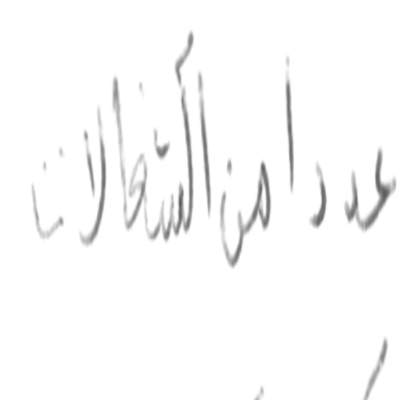 عددا من الشغالات